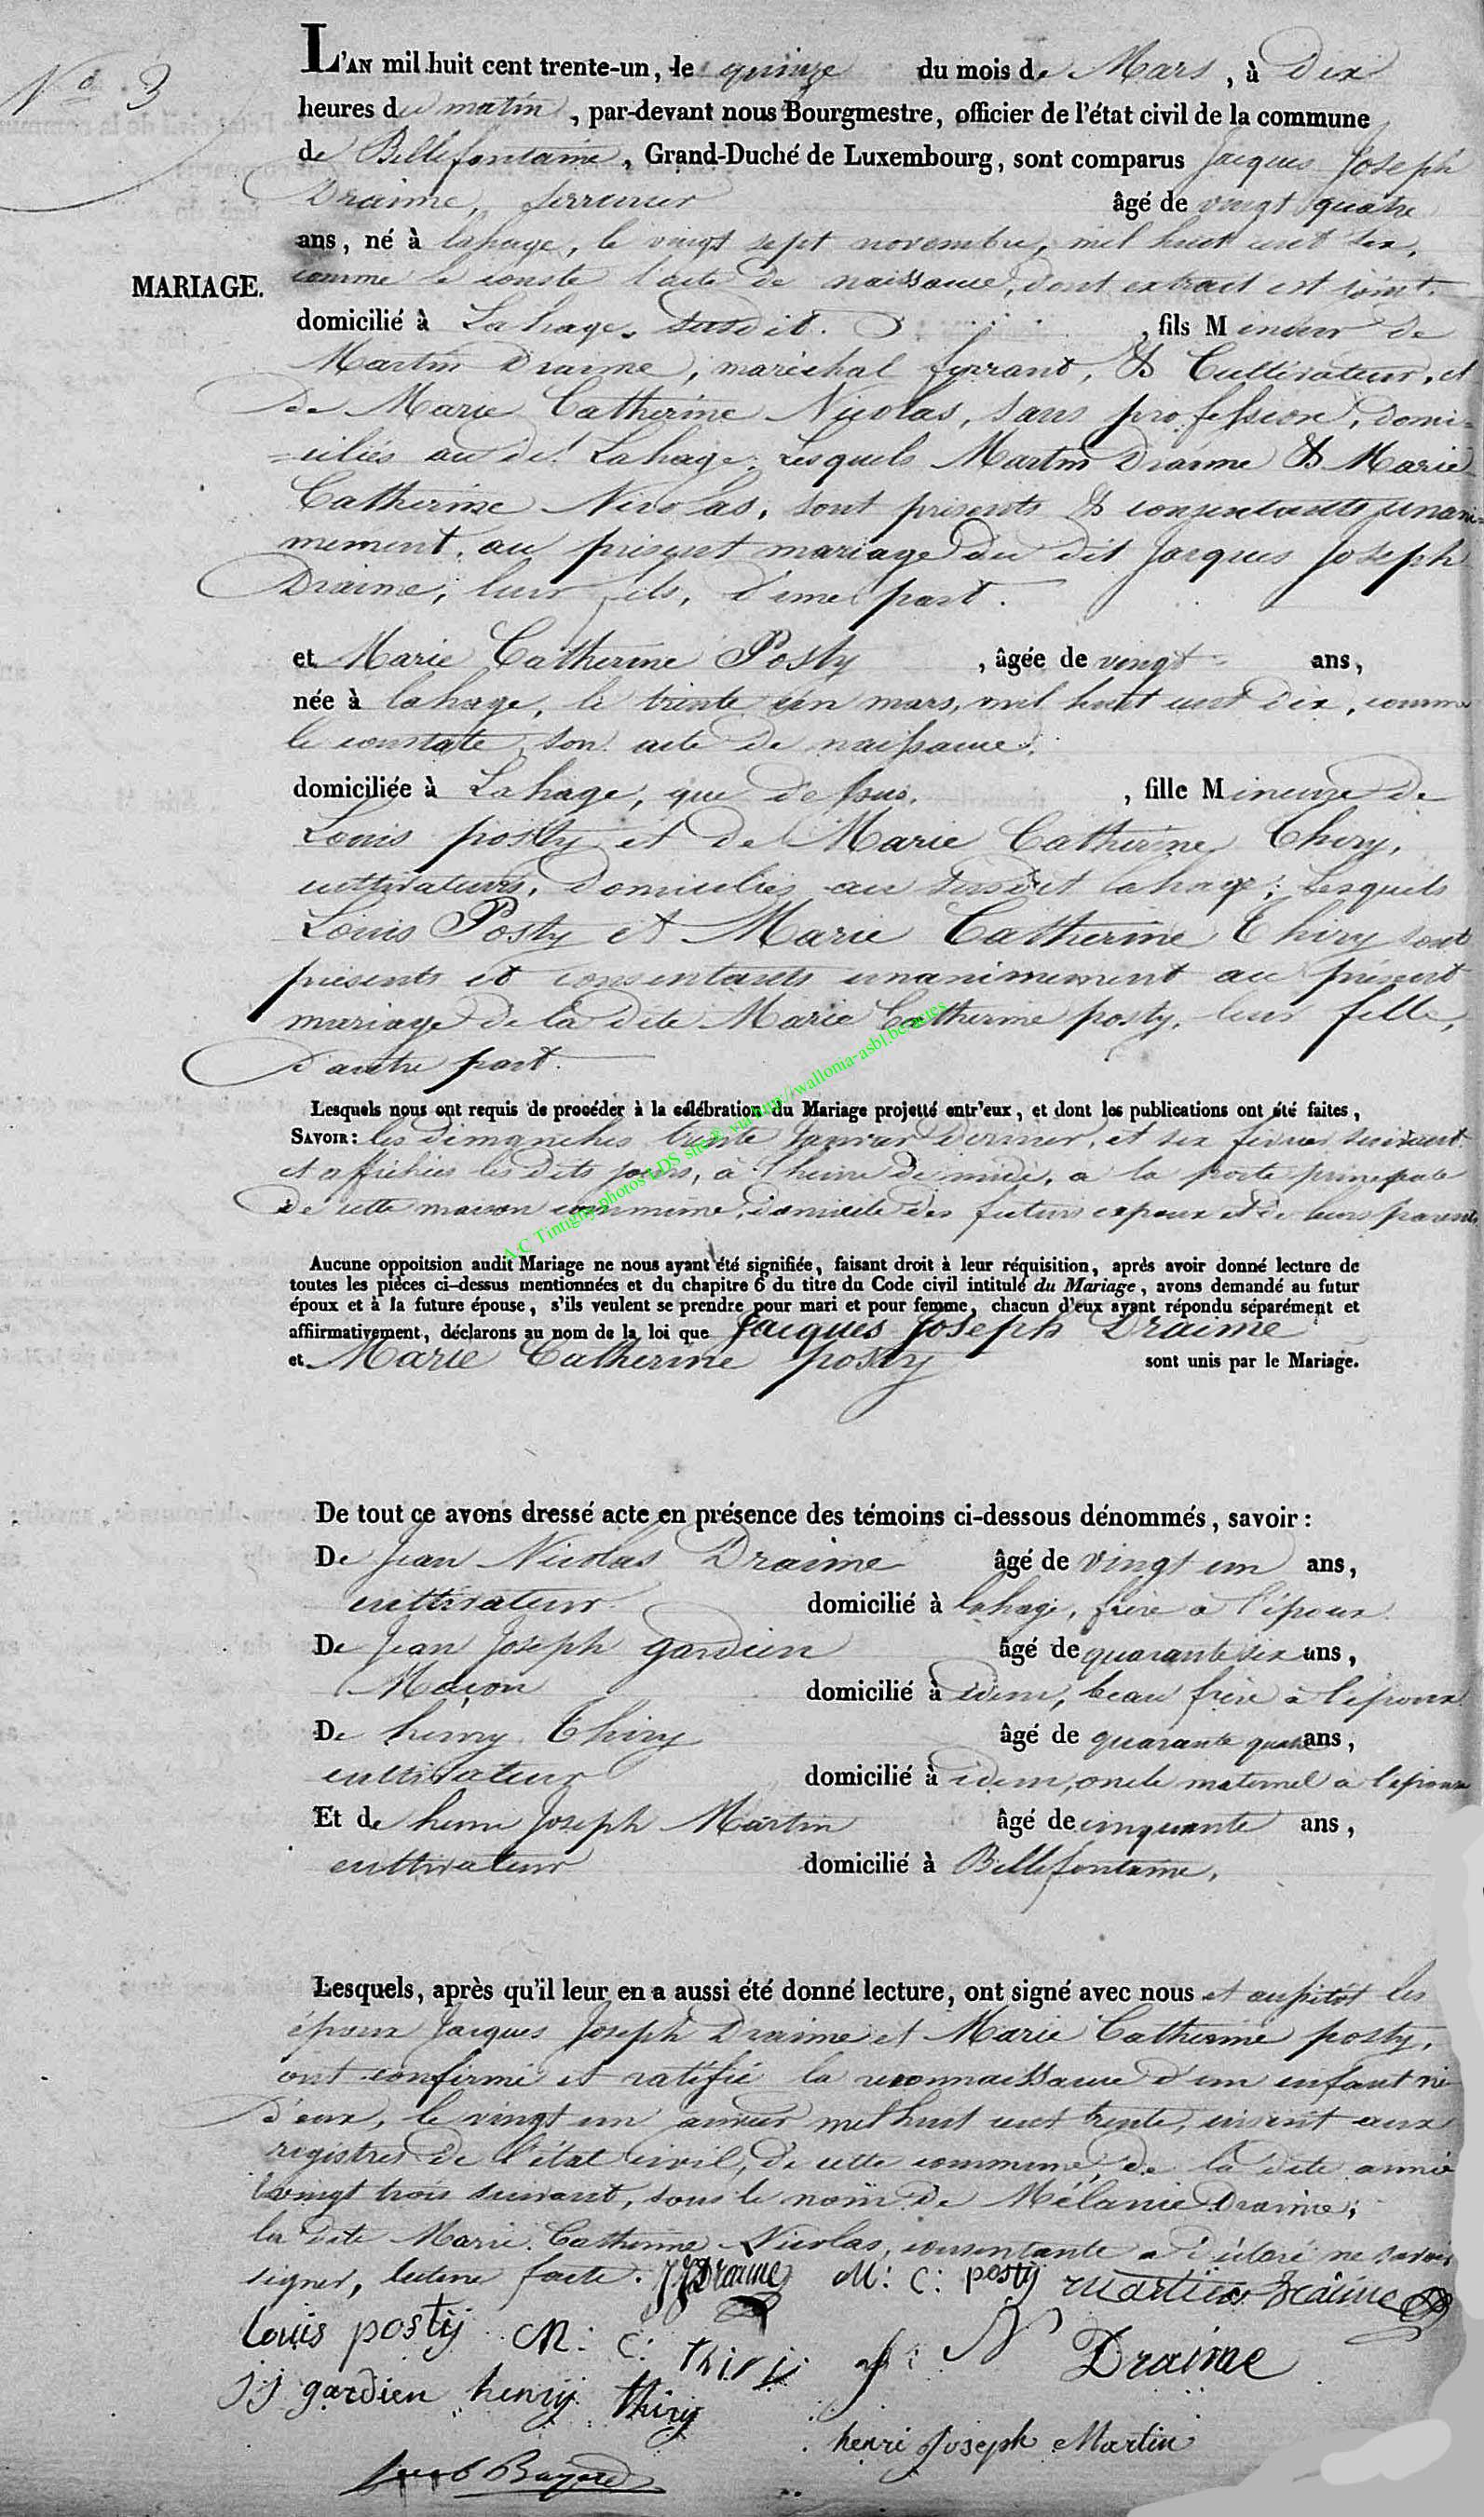 No 3
L'AN mil huit cent trente-un, le quinze du mois de Mars, à Dix
heures du matin, par-devant nous Bourgmestre, officier de l'état civil de la commune
de Bellefontaine, Grand-Duché de Luxembourg, sont comparus Jacques Joseph
Draime, serrurier âgé de vingt quatre
ans, né à lahage, le vingt sept novembre, mil huit cent six,
MARIAGE.
comme le conste l'acte de naissance, dont extrait est joint.
domicilié à Lahage, susdit. , fils Mineur de
Martin Draime, maréchal ferrant, & Cultivateur, et
de Marie Catherine Nicolas, sans profession, domi-
=ciliés au dit Lahage; Lesquels Martin Draime & Marie
Catherine Nicolas, sont présents & consentants unani-
mement, au présent mariage du dit Jacques Joseph
Draime, leur fils, d'une part.
et Marie Catherine Posty , âgée de vingt ans,
née à lahage, le trente un mars, mil huit cent dix, comme
le constate son acte de naissance.
domiciliée à Lahage, que dessus. , fille Mineure de
Louis posty et de Marie Catherine Thiry,
cultivateurs, domiciliés au susdit lahage; Lesquels
Louis Posty et Marie Catherine Thiry sont
présents et consentants unanimement au présent
mariage de la dite Marie Catherine posty, leur fille,
d'autre part.
Lesquels nous ont requis de procéder à la célébration du Mariage projetté entr'eux, et dont les publications ont été faites,
SAVOIR: les dimanches trente janvier dernier, et six février suivant
et affichées les dits jours, à l'heure de midi, a la porte principale
de cette maison commune, domicile des futurs epoux et de leurs parents,
A.C Tintigny photos LDS site via http://wallonia-asbl.be actes
Aucune oppoitsion audit Mariage ne nous ayant été signifiée, faisant droit à leur réquisition, après avoir donné lecture de
toutes les pièces ci-dessus mentionnées et du chapitre 6 du titre du Code civil intitulé du Mariage, avons demandé au futur
époux et à la future épouse, s'ils veulent se prendre pour mari et pour femme, chacun d'eux ayant répondu séparément et
affiirmativement, déclarons au nom de la loi que Jacques Joseph Draime
et Marie Catherine posty sont unis par le Mariage.
De tout ce avons dressé acte en présence des témoins ci-dessous dénommés, savoir:
De Jean Nicolas Draime âgé de vingt un ans,
cultivateur domicilié à lahage, frère a l'époux
De Jean Joseph gardien âgé de quarante six ans,
Maçon domicilié à idem, beau frère a l'époux
De henry Thiry âgé de quarante quatre ans,
cultivateur domicilié à idem, oncle maternel a l'épouse
Et de henri Joseph Martin âgé de cinquante ans,
cultivateur domicilié à Bellefontaine.
Lesquels, après qu'il leur en a aussi été donné lecture, ont signé avec nous et aussitôt les
époux Jacques Joseph Draime et Marie Catherine posty,
ont confirmé et ratifié la reconnaissance d'un enfant né
d'eux, le vingt un mil huit cent trente, inscrit aux
registres de l'état civil, de cette commune, de la dite année
le vingt trois suivant, sous le nom de Mélanie Draime;
la dite Marie Catherine Nicolas, consentante a déclaré ne savoir
signer, lecture faite. JJ Draime M: C: posty Martin Draime
Louis posty M: C: Thiry J: N Draime
JJ gardien henry thiry
henri Joseph Martin